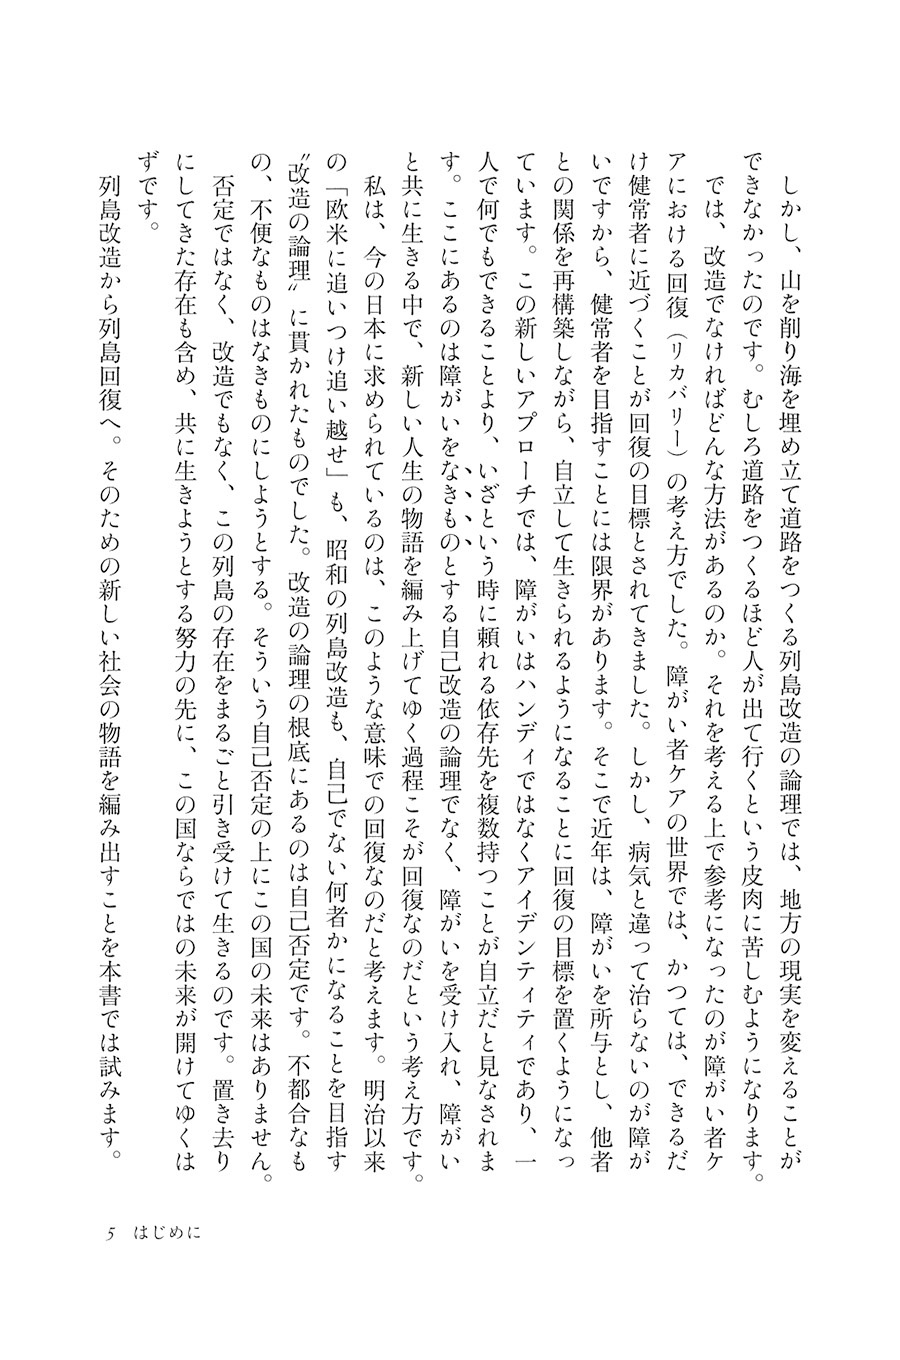 しかし、山を削り海を埋め立て道路をつくる列島改造の論理では、地方の現実を変えることが
できなかったのです。むしろ道路をつくるほど人が出て行くという皮肉に苦しむようになります。
　では、改造でなければどんな方法があるのか。それを考える上で参考になったのが障がい者ケ
アにおける回復（リカバリー）の考え方でした。障がい者ケアの世界では、かつては、できるだ
け健常者に近づくことが回復の目標とされてきました。しかし、病気と違って治らないのが障が
いですから、健常者を目指すことには限界があります。そこで近年は、障がいを所与とし、他者
との関係を再構築しながら、自立して生きられるようになることに回復の目標を置くようになっ
ています。この新しいアプローチでは、障がいはハンディではなくアイデンティティであり、一
人で何でもできることより、いざという時に頼れる依存先を複数持つことが自立だと見なされま
す。ここにあるのは障がいをなきものとする自己改造の論理でなく、障がいを受け入れ、障がい
と共に生きる中で、新しい人生の物語を編み上げてゆく過程こそが回復なのだという考え方です。
　私は、今の日本に求められているのは、このような意味での回復なのだと考えます。明治以来
の「欧米に追いつけ追い越せ」も、昭和の列島改造も、自己でない何者かになることを目指す
〝改造の論理〟に貫かれたものでした。改造の論理の根底にあるのは自己否定です。不都合なも
の、不便なものはなきものにしようとする。そういう自己否定の上にこの国の未来はありません。
　否定ではなく、改造でもなく、この列島の存在をまるごと引き受けて生きるのです。置き去り
にしてきた存在も含め、共に生きようとする努力の先に、この国ならではの未来が開けてゆくは
ずです。
　列島改造から列島回復へ。そのための新しい社会の物語を編み出すことを本書では試みます。
5　はじめに